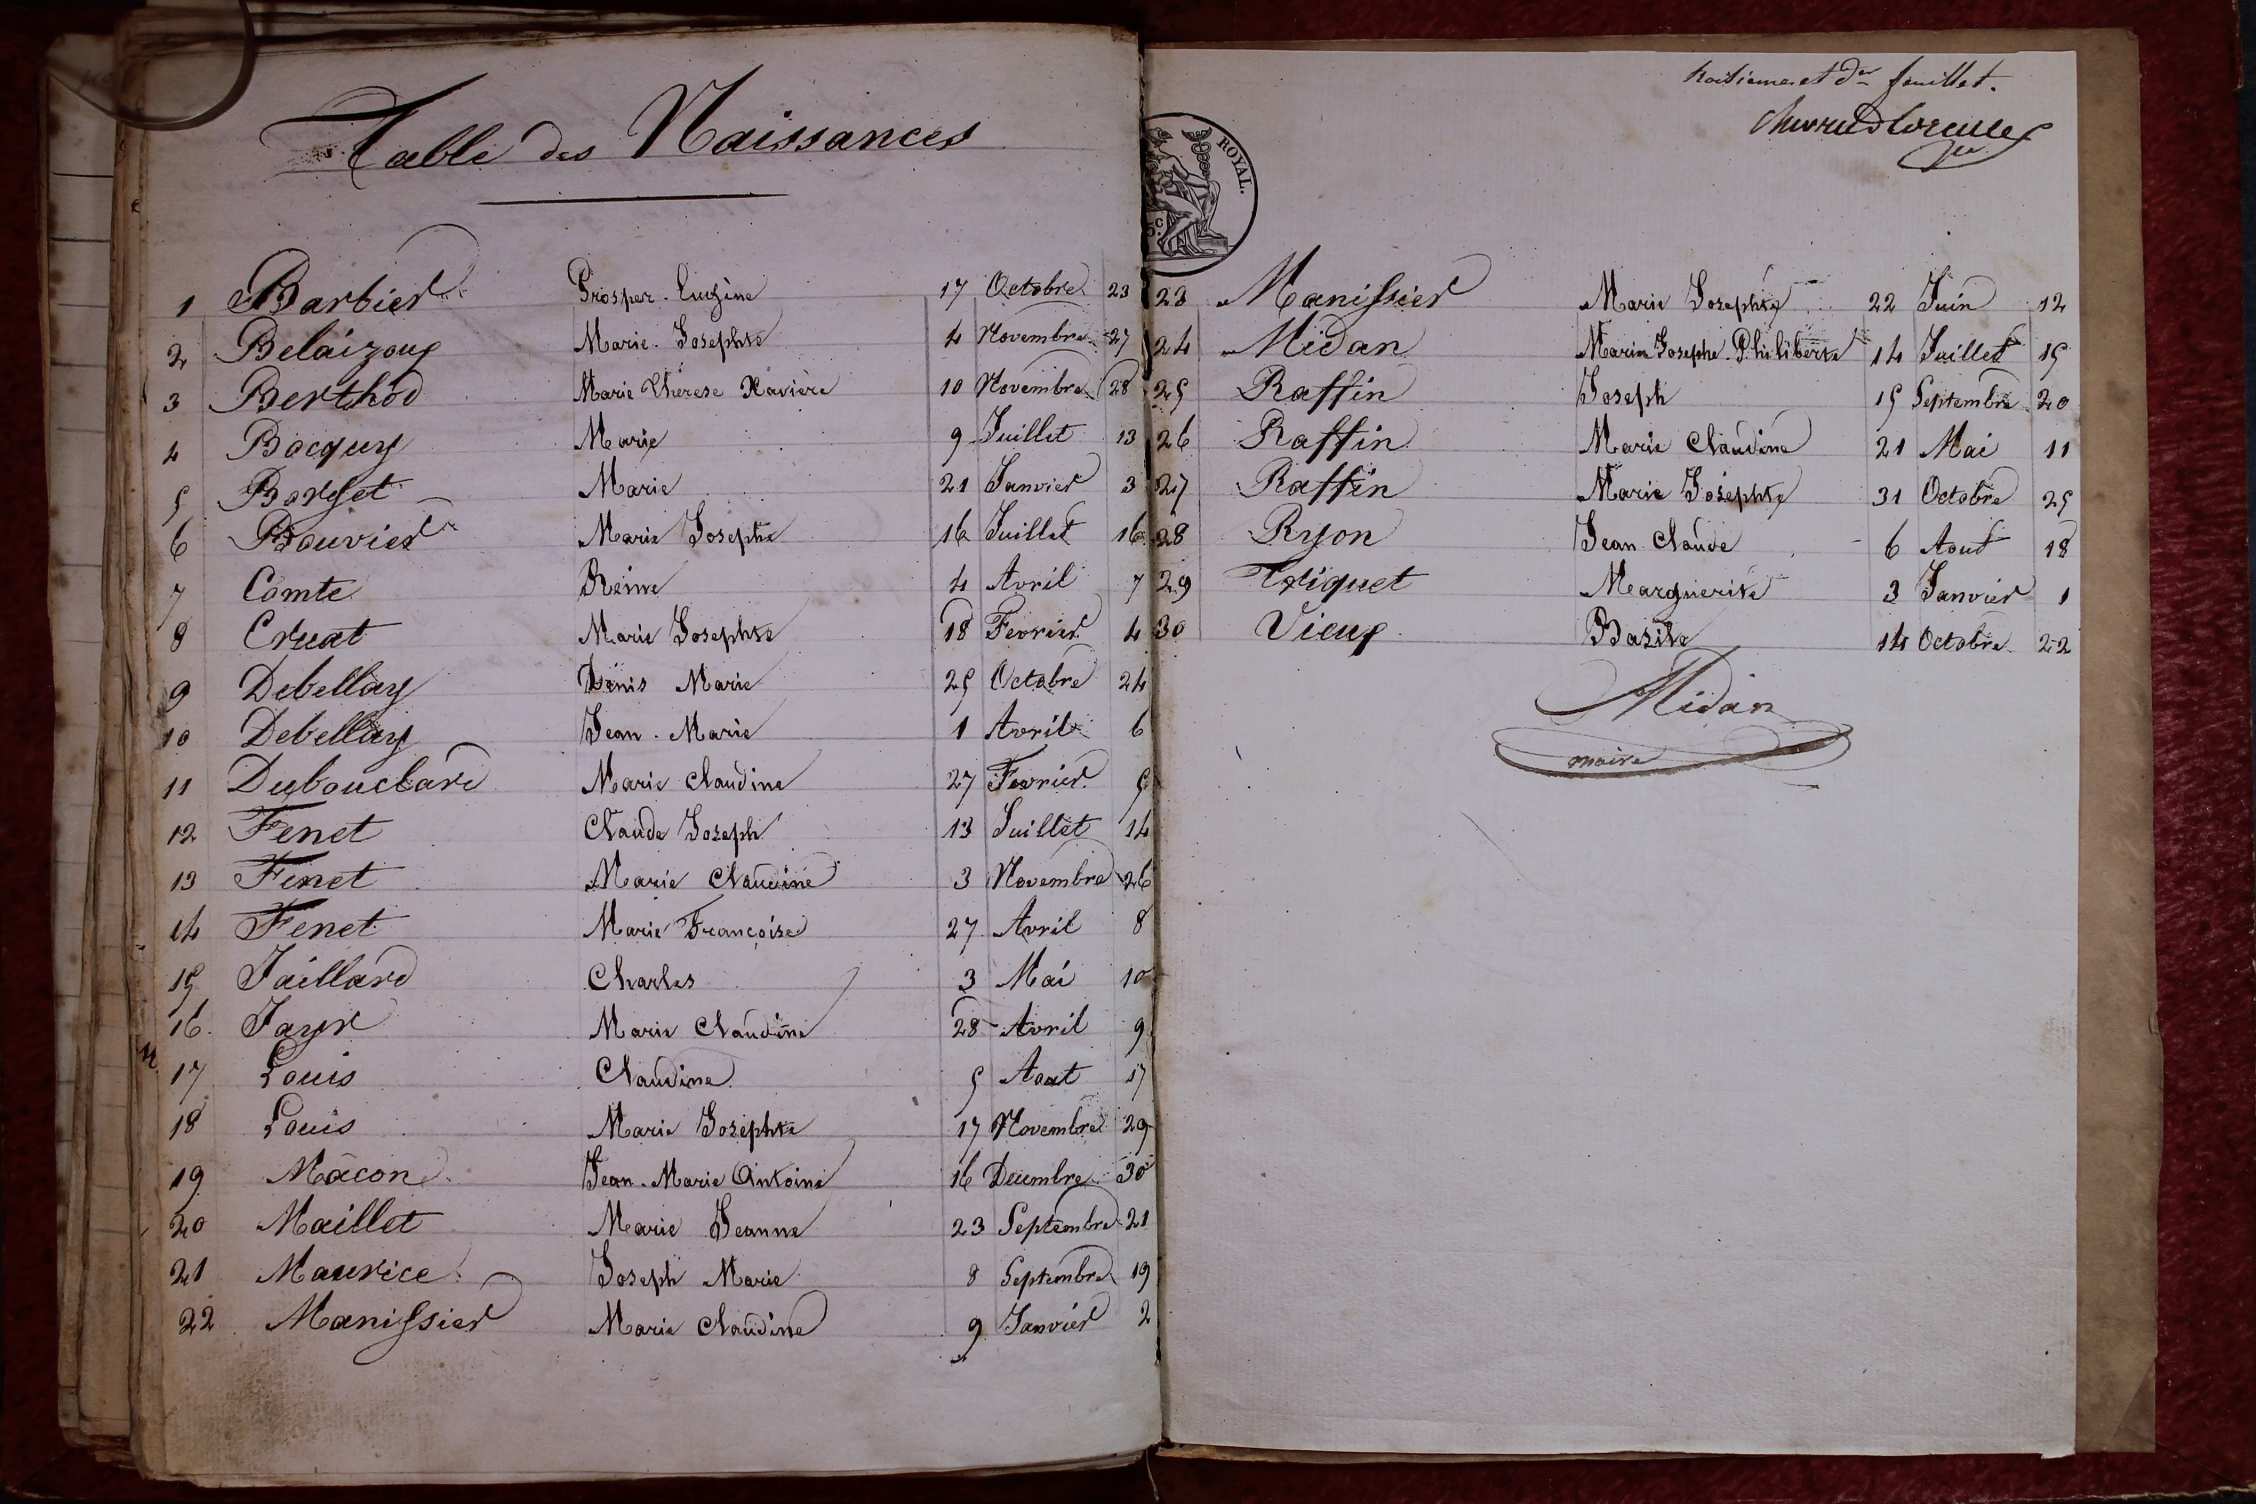 Table des Naissances
1 Barbier Prosper Eugène 17 Octobre 23
2 Belaizoux Marie Josephte 4 Novembre 27
3 Berthod Marie Thérese Xavière 10 Novembre 28
4 Bocquy Marie 9 Juillet 13
5 Borget Marie 21 Janvier 3
6 Bouvier Marie Josephte 16 Juillet 16
7 Comte Reine 4 Avril 7
8 Cruat Marie Josephte 18 Fevrier 4
9 Debellay Denis Marie 25 Octobre 24
10 Debellay Jean Marie 1 Avril 6
11 Dubouclard Marie Claudine 27 Fevrier 5
12 Fenet Claude Joseph 13 Juillet 14
13 Fenet Marie Claudine 3 Novembre 26
14 Fenet Marie Françoise 27 Avril 8
15 Jaillard Charles 3 Mai 10
16 Jayr Marie Claudine 28 Avril 9
17 Louis Claudine 5 Aout 17
18 Louis Marie Josephte 17 Novembre 29
19 Mâcon Jean Marie Antoine 16 Decembre 30
20 Maillet Marie Jeanne 23 Septembre 21
21 Maurice Joseph Marie 8 Septembre 19
22 Manissier Marie Claudine 9 Janvier 2
troisieme et der feuillet.
ROYAL.
23 Manissier Marie Josephte 22 Juin 12
24 Midan Marie Josephe Philiberte 14 Juillet 15
25 Raffin Joseph 15 Septembre 20
26 Raffin Marie Claudine 21 Mai 11
27 Raffin Marie Josephte 31 Octobre 25
28 Ryon Jean Claude 6 Aout 18
29 Tiquet Marguerite 3 Janvier 1
30 Vieux Basile 14 Octobre 22
Midan
maire